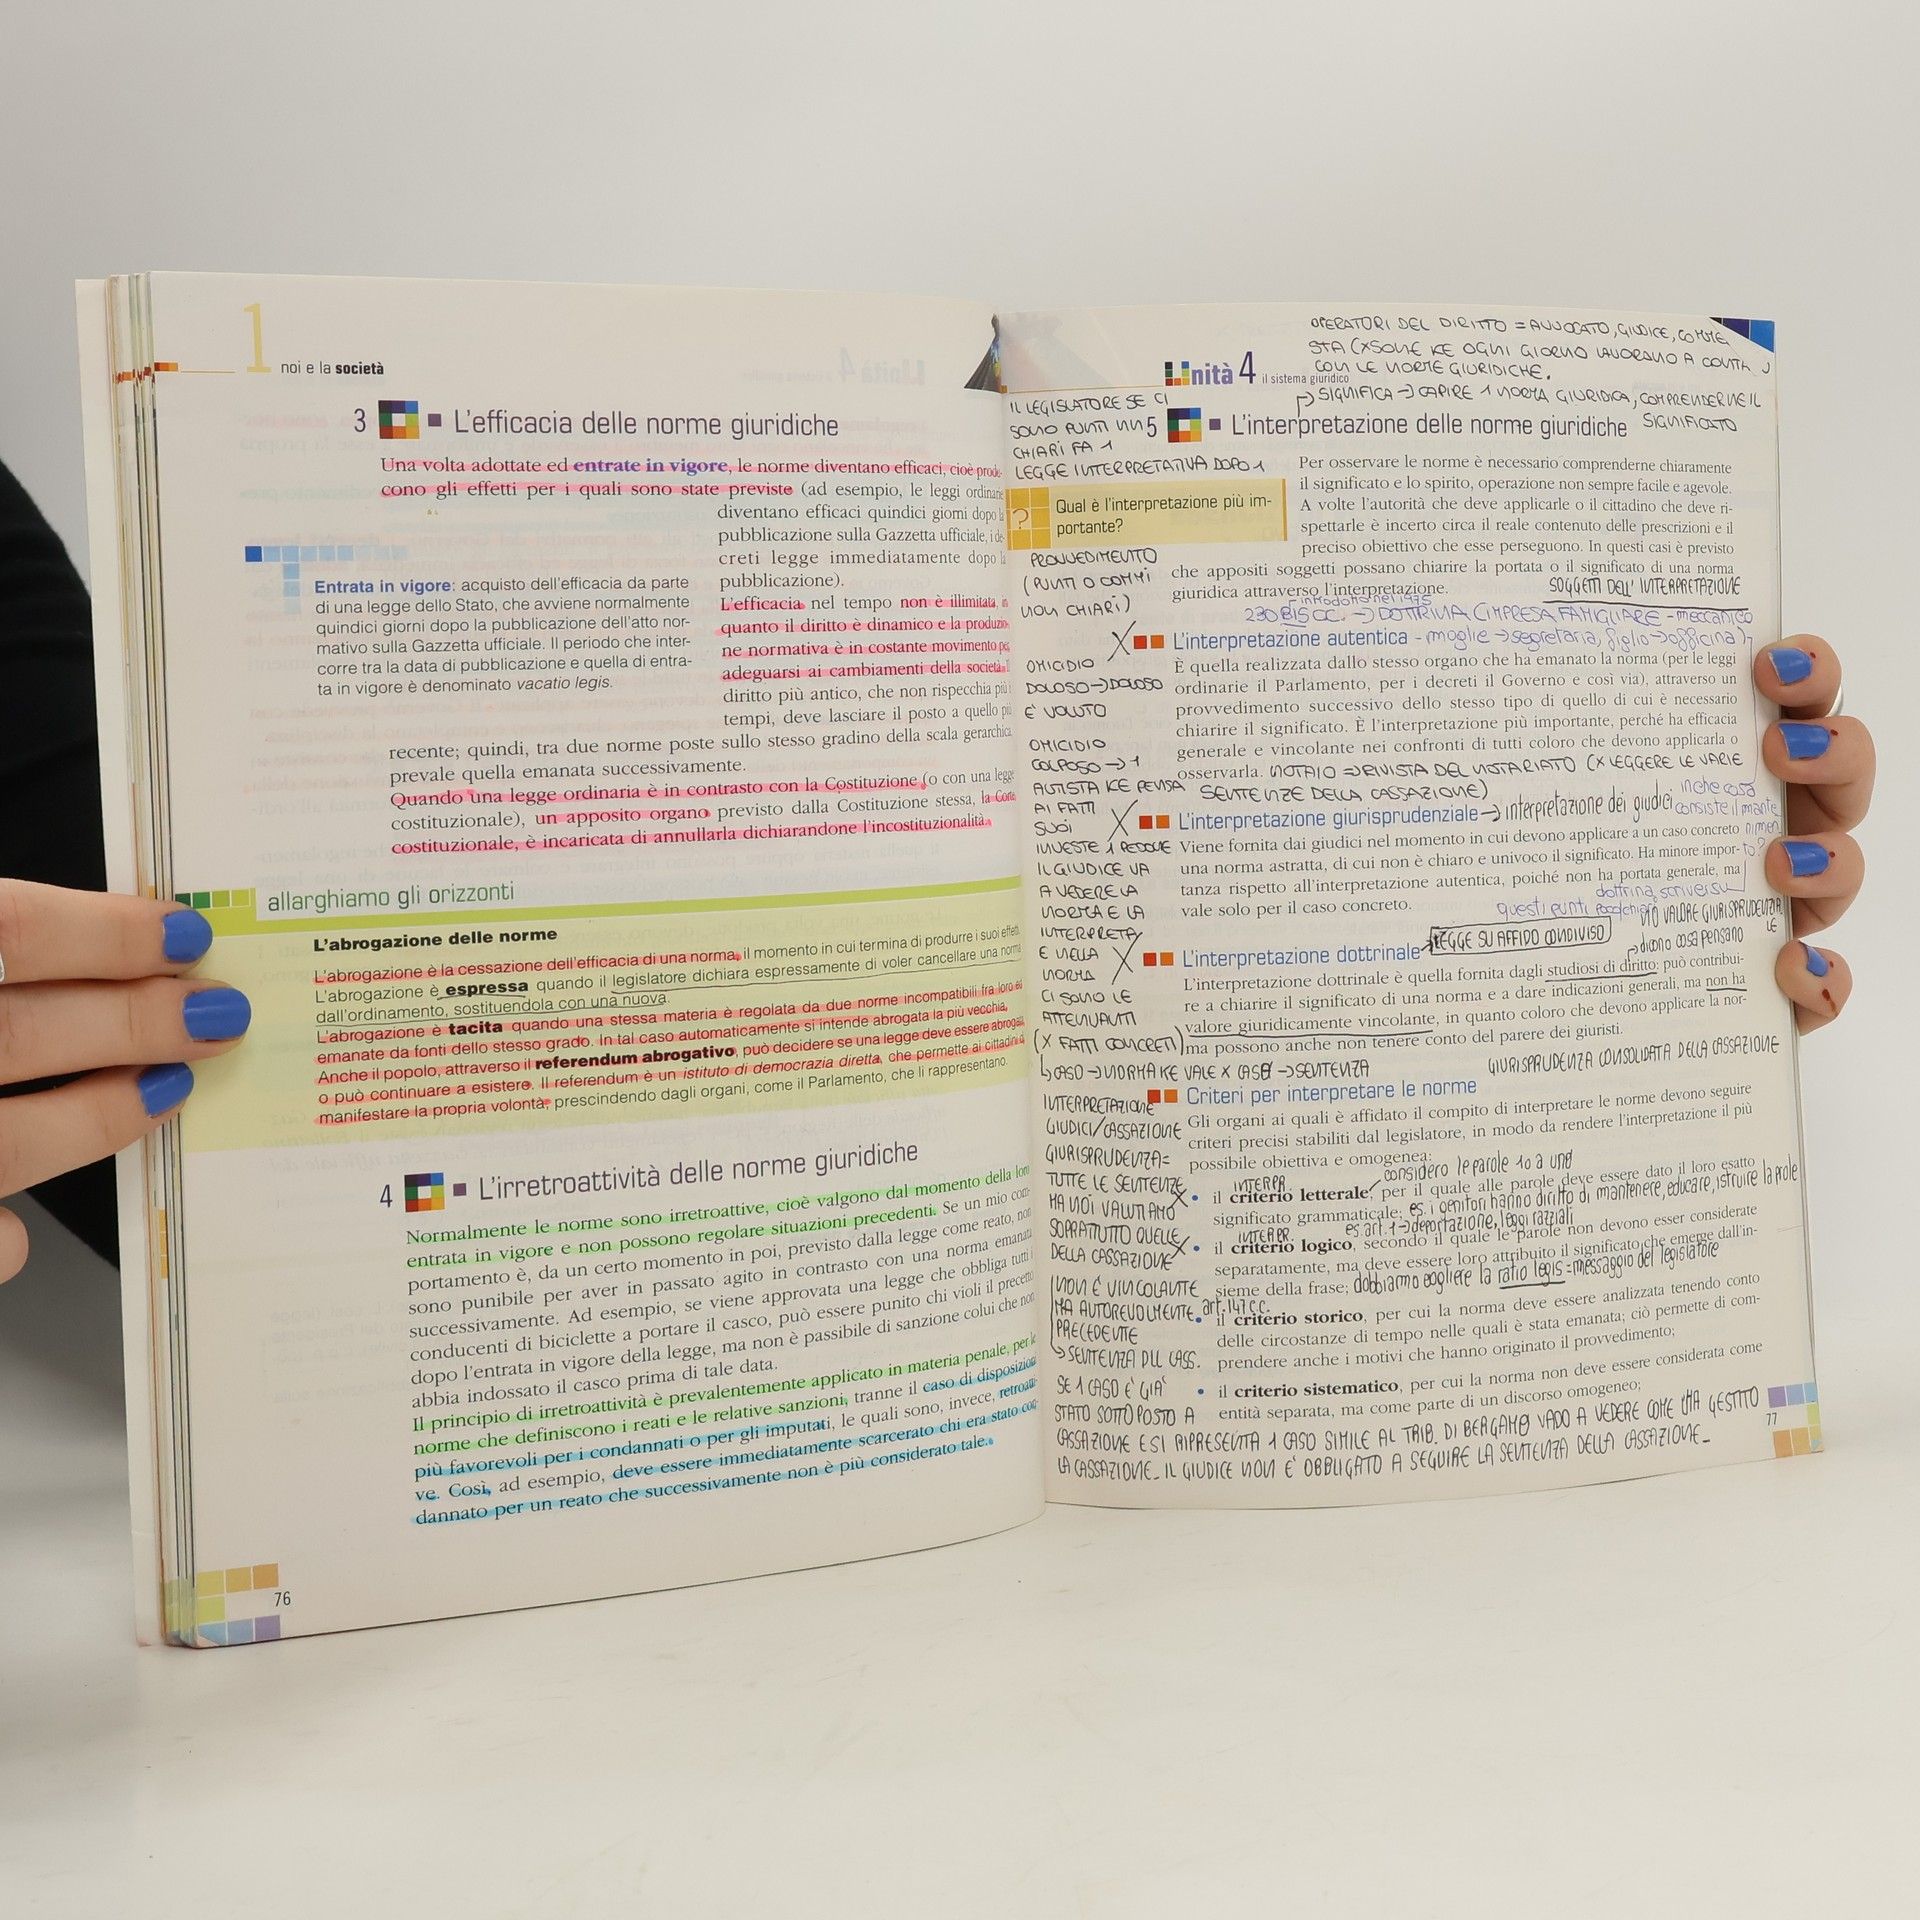 1 noi e la società
3 L'efficacia delle norme giuridiche
Una volta adottate ed entrate in vigore, le norme diventano efficaci, cioè produ-
cono gli effetti per i quali sono state previste (ad esempio, le leggi ordinarie
diventano efficaci quindici giorni dopo la
pubblicazione sulla Gazzetta ufficiale, i de-
creti legge immediatamente dopo la
pubblicazione).
L'efficacia nel tempo non è illimitata, in
quanto il diritto è dinamico e la produzio-
ne normativa è in costante movimento per
adeguarsi ai cambiamenti della società. Il
diritto più antico, che non rispecchia più i
tempi, deve lasciare il posto a quello più
recente; quindi, tra due norme poste sullo stesso gradino della scala gerarchica
prevale quella emanata successivamente.
Quando una legge ordinaria è in contrasto con la Costituzione (o con una legge
costituzionale), un apposito organo previsto dalla Costituzione stessa, la Corte
costituzionale, è incaricata di annullarla dichiarandone l'incostituzionalità.
Entrata in vigore: acquisto dell'efficacia da parte
di una legge dello Stato, che avviene normalmente
quindici giorni dopo la pubblicazione dell'atto nor-
mativo sulla Gazzetta ufficiale. Il periodo che inter-
corre tra la data di pubblicazione e quella di entra-
ta in vigore è denominato vacatio legis.
allarghiamo gli orizzonti
L'abrogazione delle norme
L'abrogazione è la cessazione dell'efficacia di una norma, il momento in cui termina di produrre i suoi effetti.
L'abrogazione è espressa quando il legislatore dichiara espressamente di voler cancellare una norma
dall'ordinamento, sostituendola con una nuova.
L'abrogazione è tacita quando una stessa materia è regolata da due norme incompatibili fra loro ed
emanate da fonti dello stesso grado. In tal caso automaticamente si intende abrogata la più vecchia.
Anche il popolo, attraverso il referendum abrogativo, può decidere se una legge deve essere abrogata
o può continuare a esistere. Il referendum è un istituto di democrazia diretta, che permette ai cittadini di
manifestare la propria volontà, prescindendo dagli organi, come il Parlamento, che li rappresentano.
4 L'irretroattività delle norme giuridiche
Normalmente le norme sono irretroattive, cioè valgono dal momento della loro
entrata in vigore e non possono regolare situazioni precedenti. Se un mio com-
portamento è, da un certo momento in poi, previsto dalla legge come reato, non
sono punibile per aver in passato agito in contrasto con una norma emanata
successivamente. Ad esempio, se viene approvata una legge che obbliga tutti i
conducenti di biciclette a portare il casco, può essere punito chi violi il precetto
dopo l'entrata in vigore della legge, ma non è passibile di sanzione colui che non
abbia indossato il casco prima di tale data.
Il principio di irretroattività è prevalentemente applicato in materia penale, per le
norme che definiscono i reati e le relative sanzioni, tranne il caso di disposizioni
più favorevoli per i condannati o per gli imputati, le quali sono, invece, retroatti-
ve. Così, ad esempio, deve essere immediatamente scarcerato chi era stato con-
dannato per un reato che successivamente non è più considerato tale.
76
OPERATORI DEL DIRITTO = AVVOCATO, GIUDICE,
STA (XSONE KE OGNI GIORNO LAVORANO A
CON LE NORME GIURIDICHE.
SIGNIFICA → CAPIRE 1 NORMA GIURIDICA, COMPRENDERNE IL
SIGNIFICATO
Unità 4 il sistema giuridico
5 L'interpretazione delle norme giuridiche
IL LEGISLATORE SE CI
SONO PUNTI NN
CHIARI FA 1
LEGGE INTERPRETATIVA DOPO 1
Qual è l'interpretazione più im-
portante?
PROVVEDIMENTO
(PUNTI O COMMI
NON CHIARI)
Per osservare le norme è necessario comprenderne chiaramente
il significato e lo spirito, operazione non sempre facile e agevole.
A volte l'autorità che deve applicarle o il cittadino che deve ri-
spettarle è incerto circa il reale contenuto delle prescrizioni e il
preciso obiettivo che esse perseguono. In questi casi è previsto
che appositi soggetti possano chiarire la portata o il significato di una norma
giuridica attraverso l'interpretazione. SOGGETTI DELL'INTERPRETAZIONE
introdotto nel 1975
230 BIS CC. → DOTTRINA (IMPRESA FAMIGLIARE - meccanico
L'interpretazione autentica - moglie → segretaria, figlio → officina)
È quella realizzata dallo stesso organo che ha emanato la norma (per le leggi
ordinarie il Parlamento, per i decreti il Governo e così via), attraverso un
provvedimento successivo dello stesso tipo di quello di cui è necessario
chiarire il significato. È l'interpretazione più importante, perché ha efficacia
generale e vincolante nei confronti di tutti coloro che devono applicarla o
osservarla. NOTAIO ⇒ RIVISTA DEL NOTARIATO (X LEGGERE LE VARIE
SENTENZE DELLA CASSAZIONE)
OMICIDIO
DOLOSO → DOLOSO
E' VOLUTO
OMICIDIO
COLPOSO → 1
AUTISTA KE PENSA
AI FATTI
SUOI
INVESTE 1 PEDONE
IL GIUDICE VA
A VEDERE LA
NORMA E LA
INTERPRETA
E NELLA
NORMA
CI SONO LE
ATTENUANTI
(X FATTI CONCRETI)
CASO → NORMA KE VALE X CASO → SENTENZA
L'interpretazione giurisprudenziale → interpretazione dei giudici
in che cosa
consiste il mante
nimen
to?
Viene fornita dai giudici nel momento in cui devono applicare a un caso concreto
una norma astratta, di cui non è chiaro e univoco il significato. Ha minore impor-
tanza rispetto all'interpretazione autentica, poiché non ha portata generale, ma
vale solo per il caso concreto.
dottrina, scrive su
questi punti poco chiari
LEGGE SU AFFIDO CONDIVISO
VALORE GIURISPRUDENZIA
LE
dicono cosa pensano
L'interpretazione dottrinale
L'interpretazione dottrinale è quella fornita dagli studiosi di diritto: può contribui-
re a chiarire il significato di una norma e a dare indicazioni generali, ma non ha
valore giuridicamente vincolante, in quanto coloro che devono applicare la nor-
ma possono anche non tenere conto del parere dei giuristi.
GIURISPRUDENZA CONSOLIDATA DELLA CASSAZIONE
Criteri per interpretare le norme
Gli organi ai quali è affidato il compito di interpretare le norme devono seguire
criteri precisi stabiliti dal legislatore, in modo da rendere l'interpretazione il più
possibile obiettiva e omogenea:
considero le parole 1 a una
INTERPR.
• il criterio letterale, per il quale alle parole deve essere dato il loro esatto
significato grammaticale; es. i genitori hanno diritto di mantenere, educare, istruire la prole
INTERPR.
es. art. 1 → deportazione, leggi razziali
• il criterio logico, secondo il quale le parole non devono esser considerate
separatamente, ma deve essere loro attribuito il significato che emerge dall'in-
sieme della frase; dobbiamo cogliere la ratio legis = messaggio del legislatore
art. 147 c.c.
• il criterio storico, per cui la norma deve essere analizzata tenendo conto
delle circostanze di tempo nelle quali è stata emanata; ciò permette di com-
prendere anche i motivi che hanno originato il provvedimento;
• il criterio sistematico, per cui la norma non deve essere considerata come
entità separata, ma come parte di un discorso omogeneo;
INTERPRETAZIONE
GIUDICI/CASSAZIONE
GIURISPRUDENZA =
TUTTE LE SENTENZE
MA NOI VALUTIAMO
SOPRATTUTTO QUELLE
DELLA CASSAZIONE
NON È VINCOLANTE
MA AUTOREVOLMENTE
PRECEDENTE
SENTENZA DLL CASS.
SE 1 CASO E' GIA'
STATO SOTTOPOSTO A
CASSAZIONE E SI RIPRESENTA 1 CASO SIMILE AL TRIB. DI BERGAMO VADO A VEDERE COME L'HA GESTITO
LA CASSAZIONE. IL GIUDICE NON E' OBBLIGATO A SEGUIRE LA SENTENZA DELLA CASSAZIONE.
77